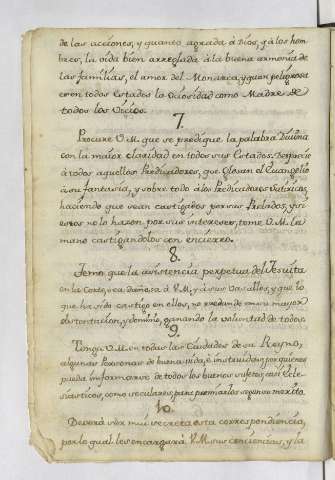 de las acciones, y quanto agrada à Dios, y à los hom
bres, la vida bien arreglada à la buena armonia de
las familias, el amor del Monarca, y quan peligrosa
es en todos Estados la Ociosidad como Madre de
todos los Vicios.
7.
Procure V.M. que se predique la palabra Divina
con la maior claridad en todos sus Estados.
à todos aquellos Predicadores, que glosan el Evangelio
à su fantasia, y sobre todo à los Predicadores Satiricos,
haciendo que sean castigados por sus Prelados, y si
estos no lo hazen por sus intereses, tome V.M. la
mano castigandolos con encierro.
8.
Temo que la asistencia perpetua del Jesuita
en la Corte, sea dañosa à V.M. y à sus Vasallos, y que lo
que ha sido castigo en ellos, no de en su mayor
obstentacion, y dominio, ganando la voluntad de todos.
9.
Tenga V.M. en todas las Ciudades de su Reyno,
algunas Personas de buena vida, è instruidas, por quienes
pueda informarse de todos los buenos sujetos, asi Ecle
siasticos, como seculares, para premiarlos segun su merito.
10.
Deverà ser mui secreta esta correspondiencia,
por lo qual les encargarà V.M. sus conciencias, y la